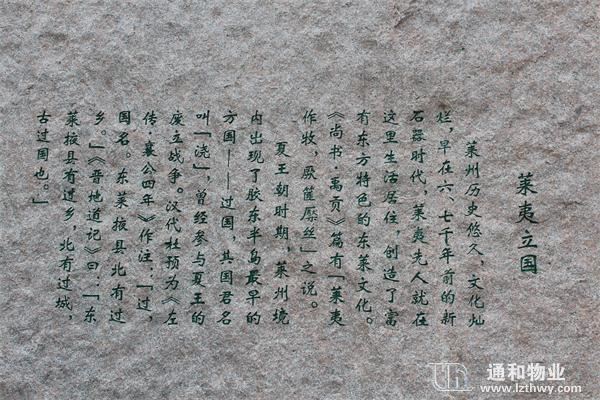 莱夷立国
莱州历史悠久，文化灿
烂，早在六、七千年前的新
石器时代，莱夷先人就在
这里生活居住，创造了富
有东方特色的东莱文化。
《尚书·禹贡》篇有「莱夷
作牧，厥篚檿丝」之说。
夏王朝时期，莱州境
内出现了胶东半岛最早的
方国——过国，其国君名
叫「浇」，曾经参与夏王的
废立战争。汉代杜预为《左
传·襄公四年》作注：「过，
国名。东莱掖县北有过
乡。」《晋地道记》曰：「东
莱掖县有过乡，北有过城，
古过国也。」
通和物业
www.lzthwy.com